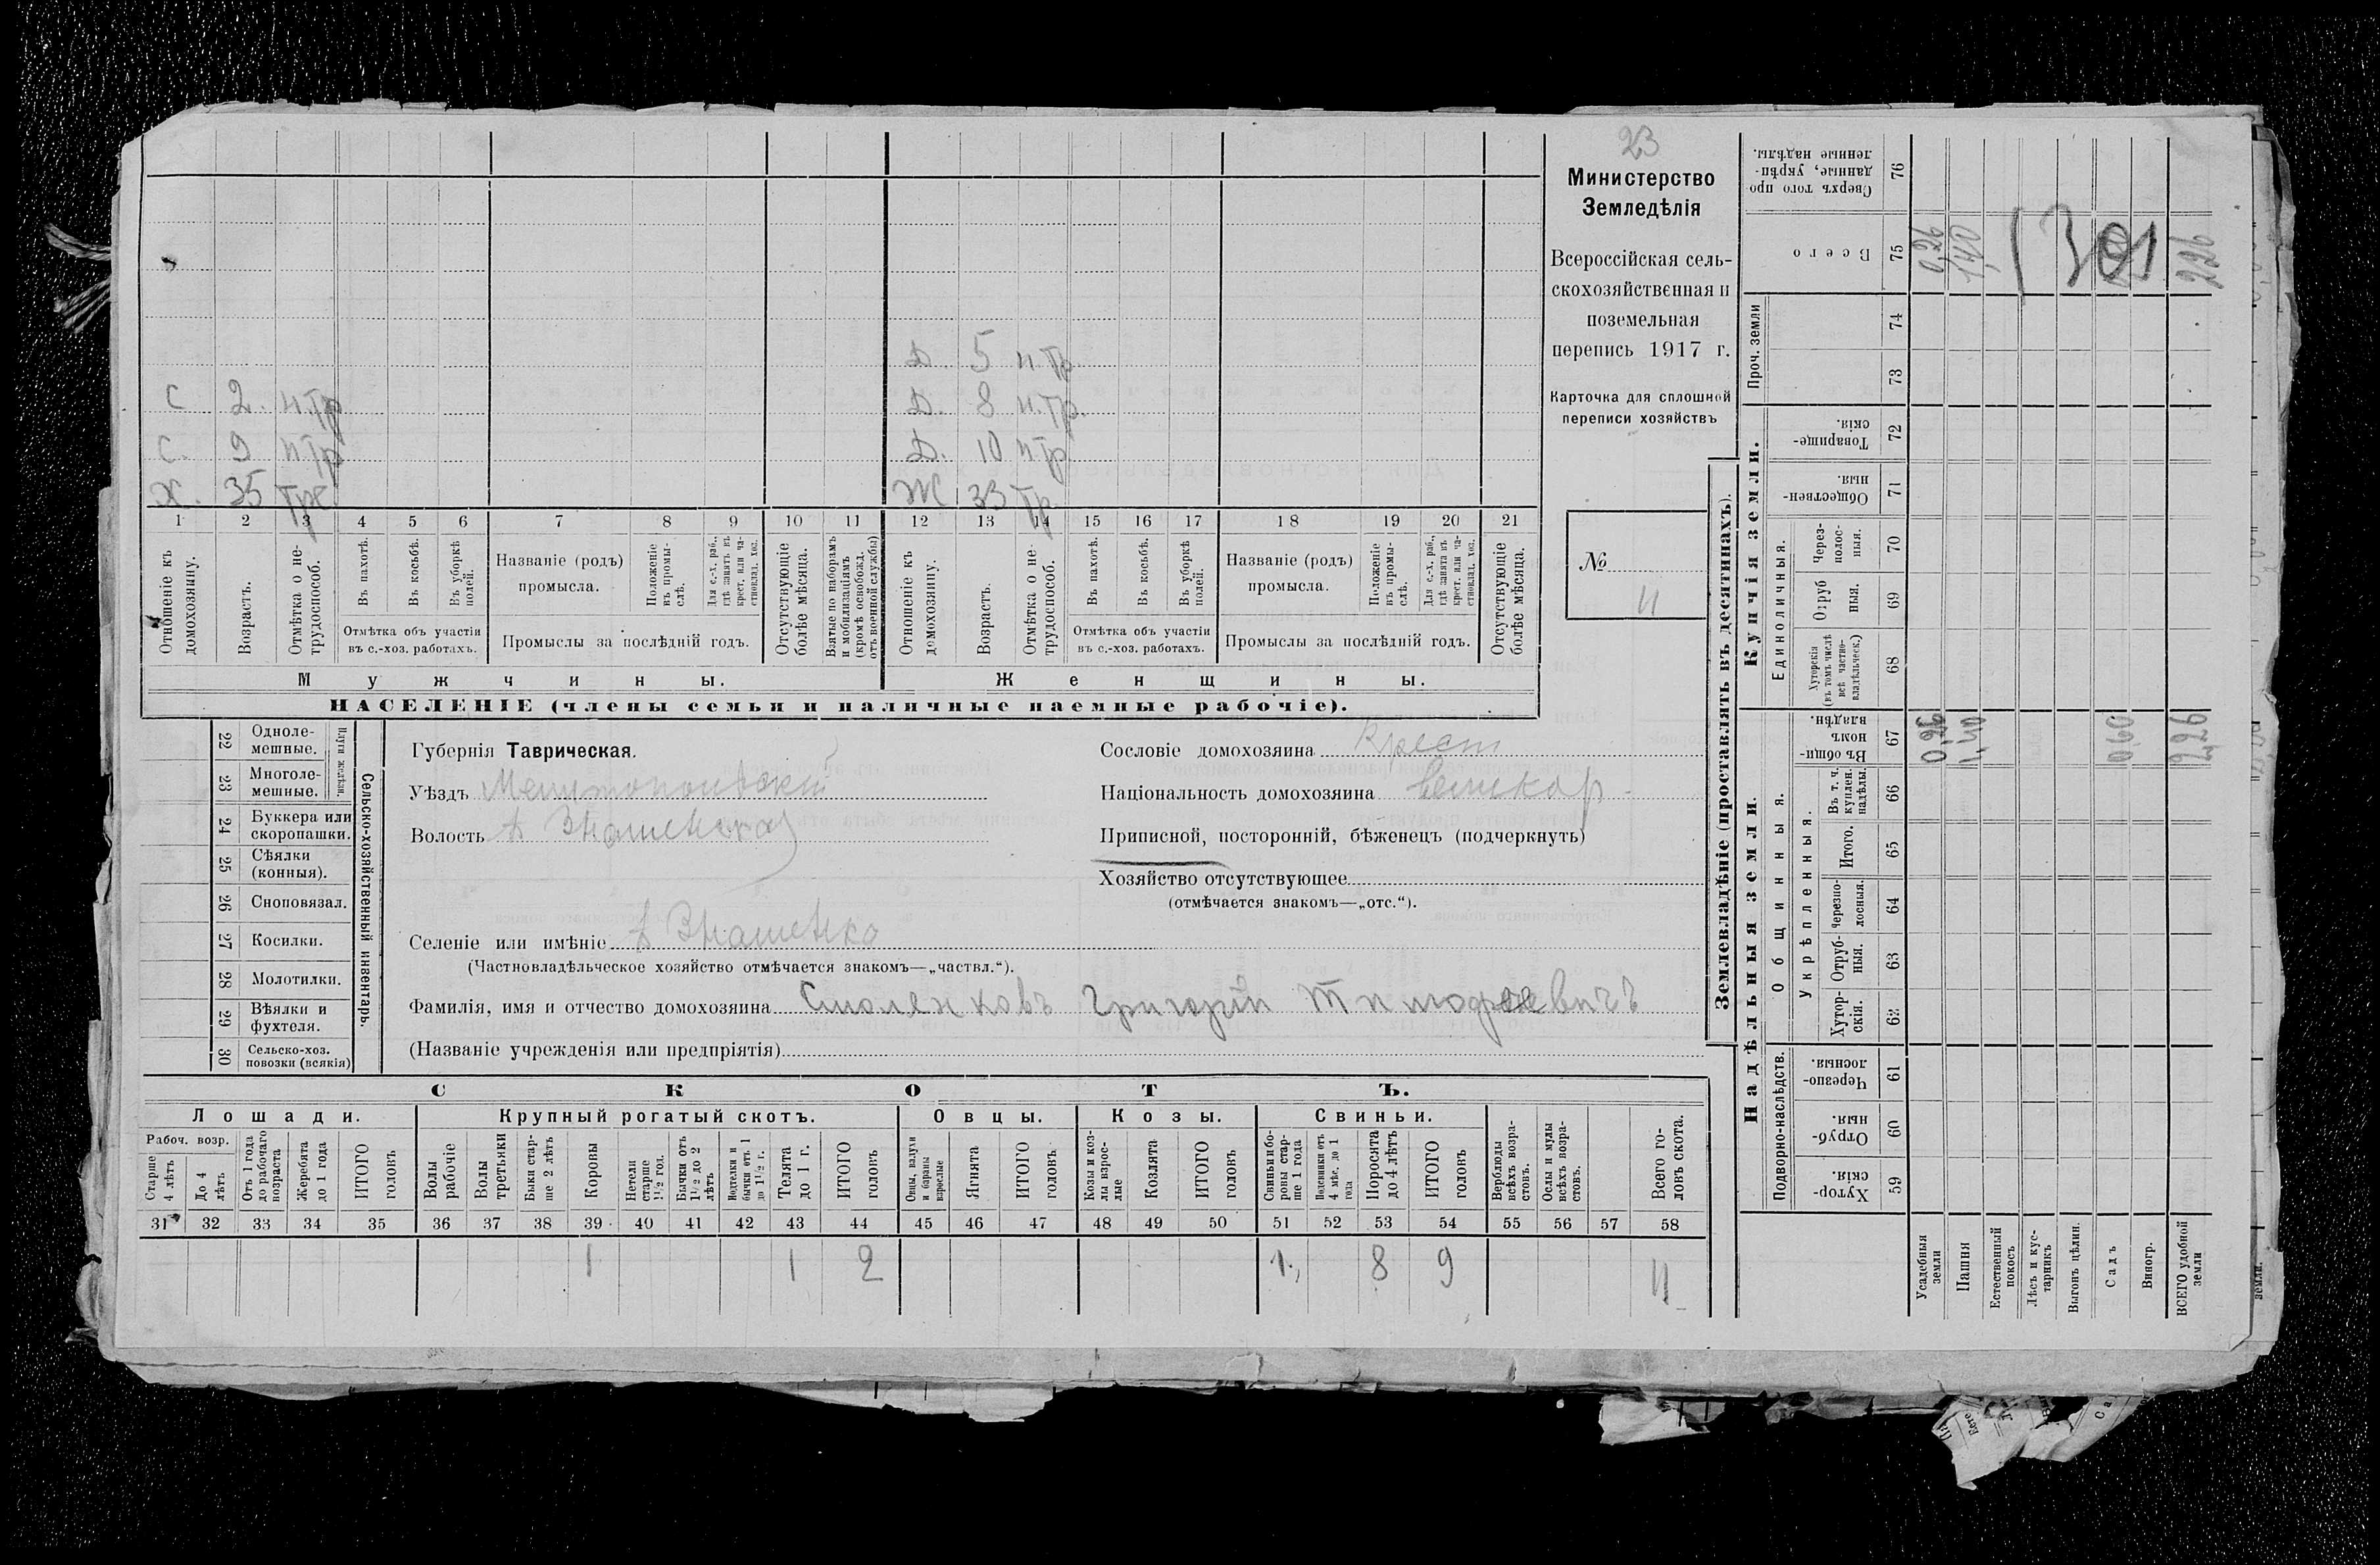 23
Министерство
Земледѣлія
Всероссійская сель-
скохозяйственная и
поземельная
перепись 1917 г.
Карточка для сплошной
переписи хозяйствъ
№
11
Д. 5 н.тр.
С 2. н.тр. Д. 8 н.тр.
С. 9 н.тр Д. 10 н.тр
Х. 35 Ж 33 тр.
1 2 3 4 5 6 7 8 9 10 11 12 13 14 15 16 17 18 19 20 21
Отношеніе къ домохозяину.
Возрастъ.
Отмѣтка о не-трудоспособ.
Въ пахотѣ.
Въ косьбѣ.
Въ уборкѣ полей.
Отмѣтка объ участіи
въ с.-хоз. работахъ.
Названіе (родъ)
промысла.
Положеніе въ промы-слѣ.
Для с.-х. раб., гдѣ занятъ въ крест. или ча-стновлад. хоз.
Промыслы за послѣдній годъ.
Отсутствующіе болѣе мѣсяца.
Взятые по наборамъ и мобилизаціямъ (кромѣ освобожд. отъ военной службы)
Отношеніе къ домохозяину.
Возрастъ.
Отмѣтка о не-трудоспособ.
Въ пахотѣ.
Въ косьбѣ.
Въ уборкѣ полей.
Отмѣтка объ участіи
въ с.-хоз. работахъ.
Названіе (родъ)
промысла.
Положеніе въ промы-слѣ.
Для с.-х. раб., гдѣ занята въ крест. или ча-стновлад. хоз.
Промыслы за послѣдній годъ.
Отсутствующіе болѣе мѣсяца.
Мужчины. Женщины.
НАСЕЛЕНІЕ (члены семьи и наличные наемные рабочіе).
22 Одноле-мешные.
23 Многоле-мешные.
Плуги желѣзн.
24 Буккера или скоропашки.
25 Сѣялки (конныя).
26 Сноповязал.
27 Косилки.
28 Молотилки.
29 Вѣялки и фухтеля.
30 Сельско-хоз. повозки (всякія)
Сельско-хозяйственный инвентарь.
Губернія Таврическая.
Уѣздъ Мелитопольскій
Волость Знаменская
Сословіе домохозяина Крест
Національность домохозяина Великор
Приписной, посторонній, бѣженецъ (подчеркнуть)
Хозяйство отсутствующее
(отмѣчается знакомъ—„отс.“).
Селеніе или имѣніе Знаменка
(Частновладѣльческое хозяйство отмѣчается знакомъ—„частвл.“).
Фамилія, имя и отчество домохозяина Смоленковъ Григорій Тимофеевичъ
(Названіе учрежденія или предпріятія)
СКОТЪ.
Лошади. Крупный рогатый скотъ. Овцы. Козы. Свиньи.
Рабоч. возр.
Старше 4 лѣтъ
До 4 лѣтъ
Отъ 1 года до рабочаго возраста
Жеребята до 1 года
ИТОГО головъ
Волы рабочіе
Волы третьяки
Быки стар-ше 2 лѣтъ
Коровы
Нетели старше 1½ год.
Бычки отъ 1½ до 2 лѣтъ
Подтелки и бычки отъ 1 до 1½ г.
Телята до 1 г.
ИТОГО головъ
Овцы, валухи и бараны взрослые
Ягнята
ИТОГО головъ
Козы и коз-лы взрос-лые
Козлята
ИТОГО головъ
Свиньи и бо-ровы стар-ше 1 года
Подсвинки отъ 4 мѣс. до 1 года
Поросята до 4 лѣтъ
ИТОГО головъ
Верблюды всѣхъ возра-стовъ.
Ослы и мулы всѣхъ возра-стовъ.
Всего го-ловъ скота.
31 32 33 34 35 36 37 38 39 40 41 42 43 44 45 46 47 48 49 50 51 52 53 54 55 56 57 58
1 1 2 1 8 9 11
Землевладѣніе (проставлять въ десятинахъ).
Надѣльныя земли. Купчія земли. Проч. земли
Подворно-наслѣдств.
Общинныя.
Укрѣпленныя.
Единоличныя.
Сверхъ того про-данные, укрѣп-ленные надѣлы. 76
Всего 75 0,26 1,40 2,26
(301
74
73
Товарище-скія. 72
Обществен-ныя. 71
Через-полос-ныя. 70
Отруб ныя. 69
Хуторскія (въ томъ числѣ всѣ частно-владѣльческ.) 68
Въ общи-номъ владѣн. 67 0,26 1,40 0,60 2,26
Въ т. ч. куплен. надѣлы. 66
Итого. 65
Черезпо-лосныя. 64
Отруб-ныя. 63
Хутор-скія. 62
Черезпо-лосныя. 61
Отруб-ныя. 60
Хутор-скія. 59
Усадебныя земли
Пашня
Естественный покосъ
Лѣсъ и кус-тарникъ
Выгонъ цѣлин.
Садъ
Виногр.
ВСЕГО удобной земли
земли.